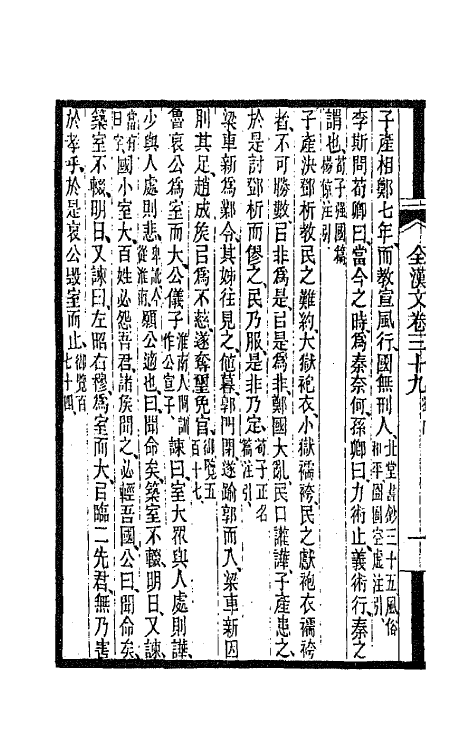 全漢文卷三十九
一
子產相鄭七年而教宣風行國無刑人北堂書鈔三十五風俗和平囹圄空虛注引
李斯問荀卿曰當今之時為秦奈何孫卿曰力術止義術行秦之
謂也荀子强國篇楊倞注引
子產決鄧析教民之難約大獄袍衣小獄襦袴民之獻袍衣襦袴
者不可勝數以非為是以是為非鄭國大亂民口讙譁子產患之
於是討鄧析而僇之民乃服是非乃定荀子正名篇注引
梁車新為鄴令其姊往見之值暮郭門閉遂踰郭而入梁車新因
則其足趙成矦以為不慈遂奪璽免官御覽五百十七
魯哀公為室而大公儀子淮南人閒訓作公宣子諫曰室大眾與人處則譁
少與人處則悲卑議人從淮南願公適也曰聞命矣築室不輟明日又諫
當有曰字國小室大百姓必怨吾君諸矦聞之必輕吾國公曰聞命矣
築室不輟明日又諫曰左昭右穆為室而大以臨二先君無乃害
於孝乎於是哀公毀室而止御覽百七十四